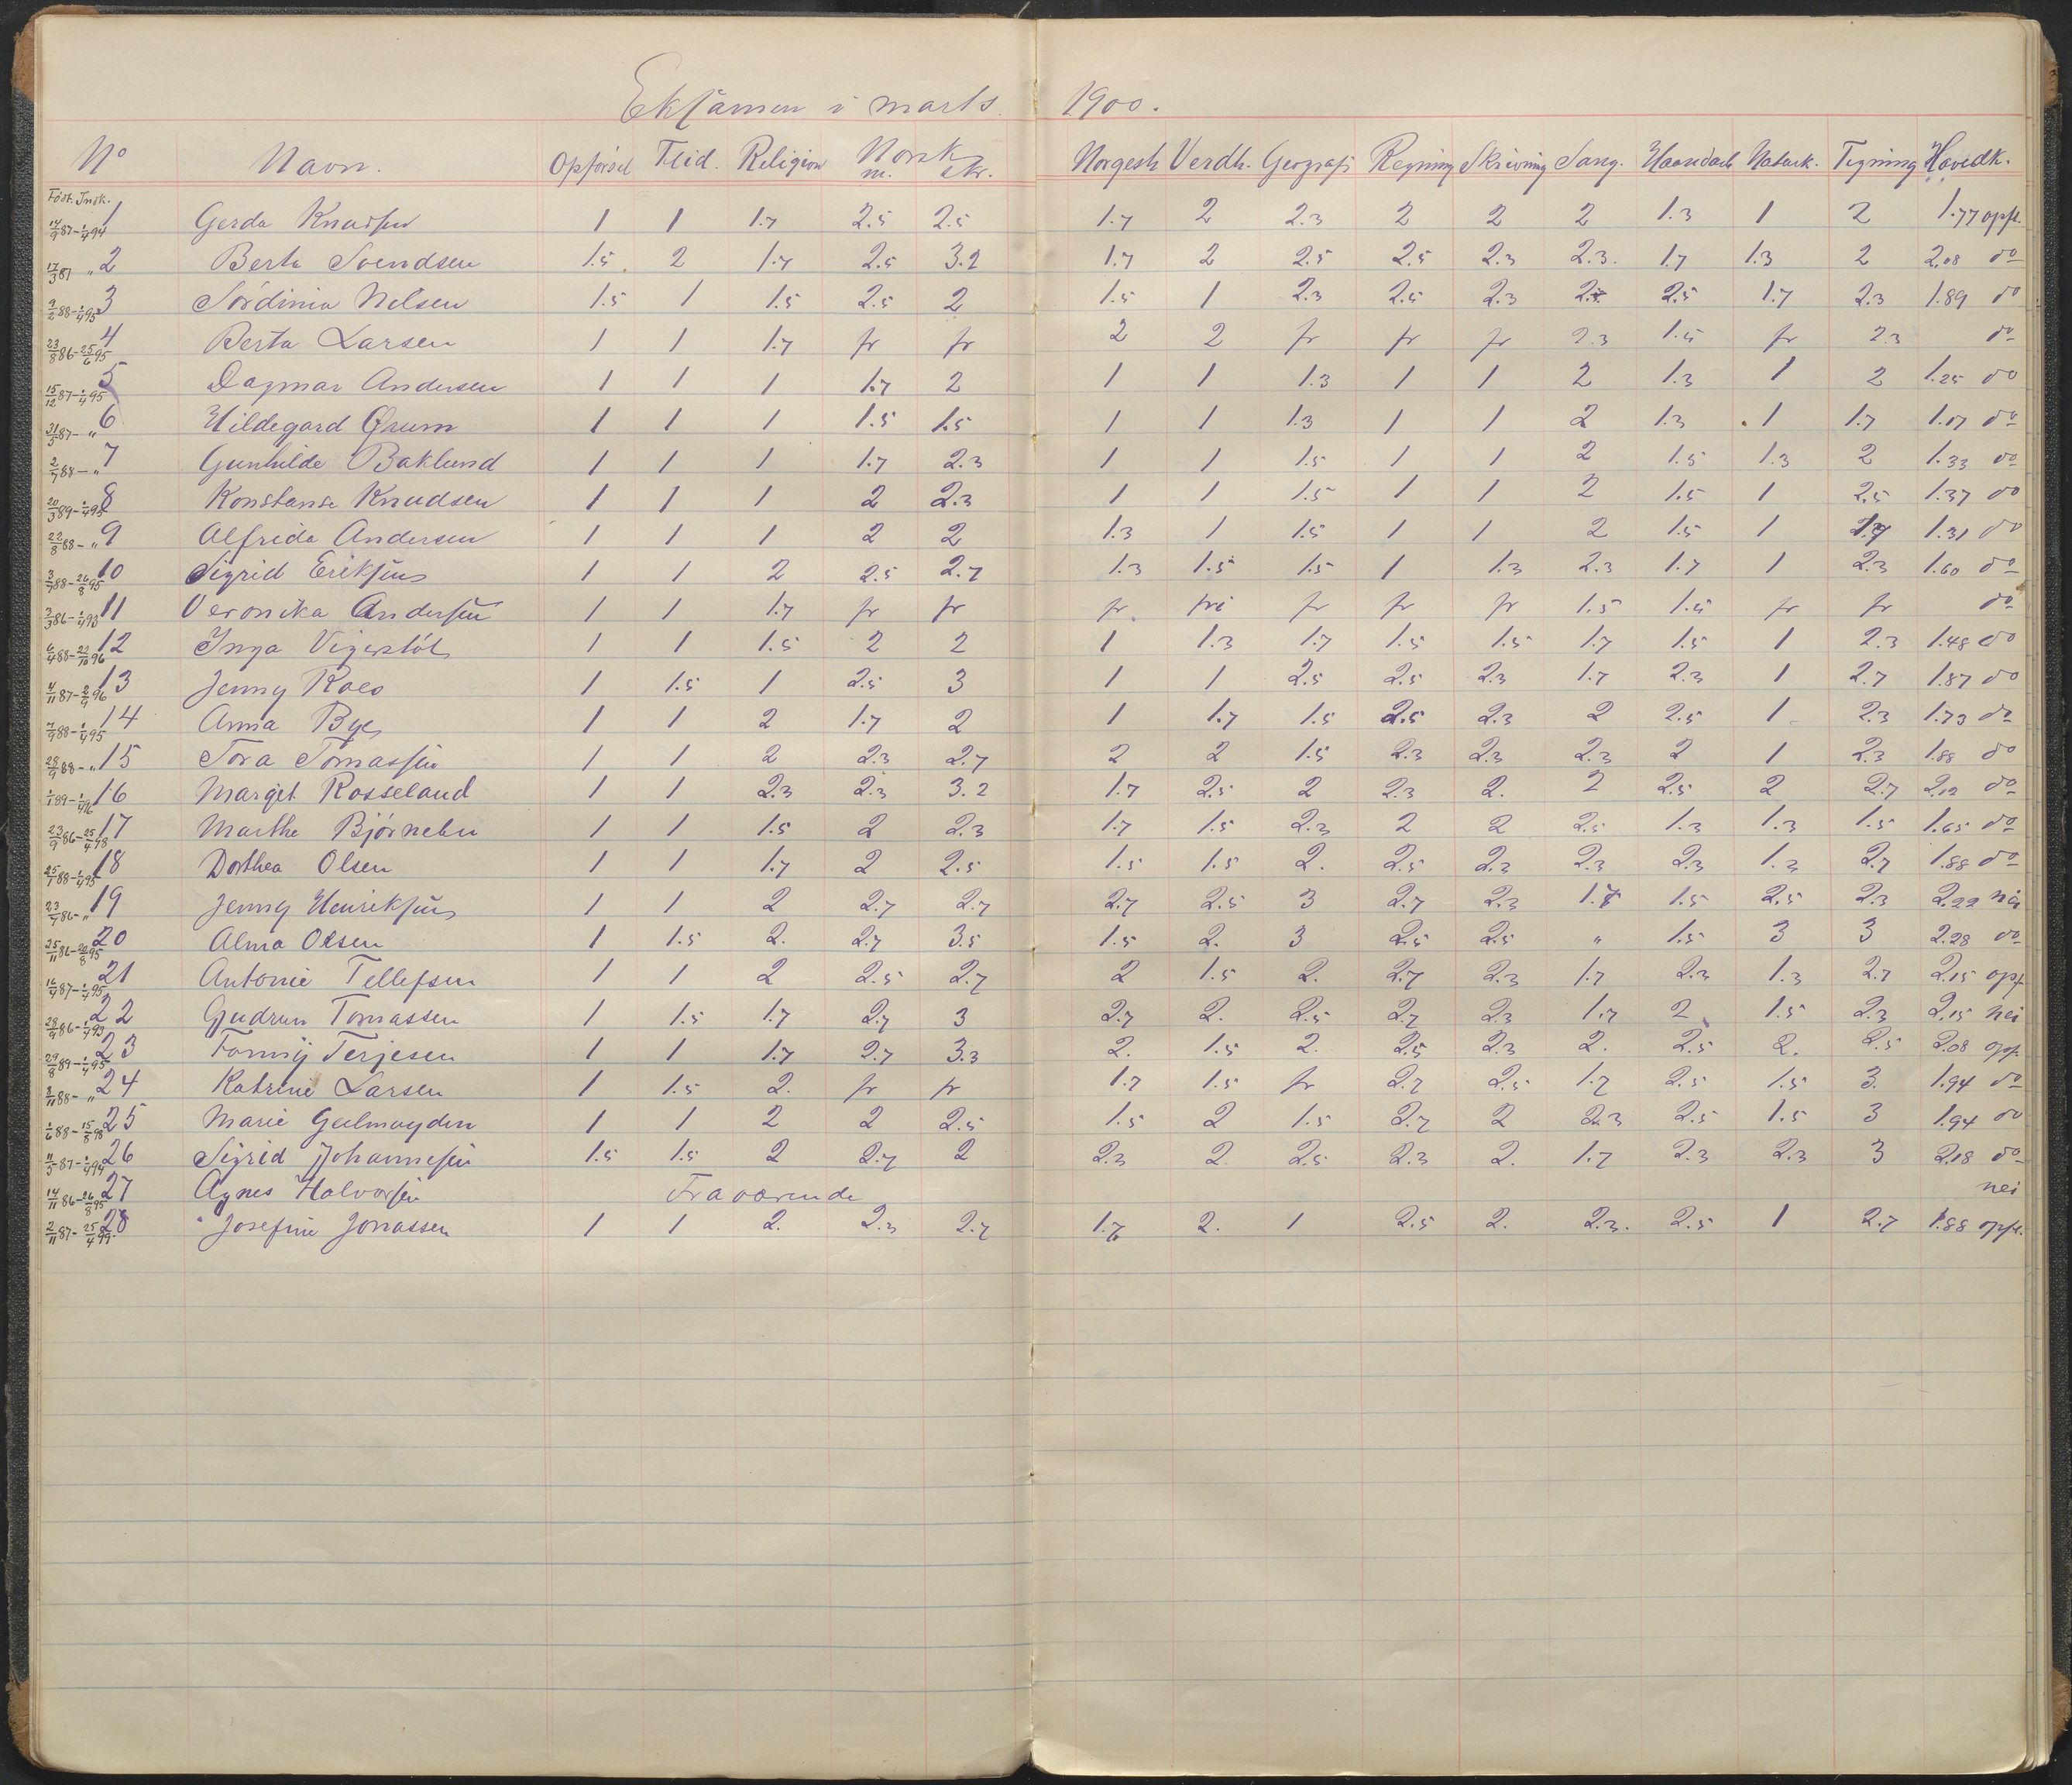 Eksamen i marts 1900.
No Navn. Opförsel Flid. Religion Norsk m. skr. Norgesh Verdh. Geografi Regning Skrivning Sang. Haandarb Naturk. Tegning Hovedk.
Föst. Insk.
14/9 87-1/4 94 1 Gerda Knudsen 1 1 1.7 2.5 2.5 1.7 2 2.3 2 2 2 1.3 1 2 1.77 opfl.
17/3 87 " 2 Berta Svendsen 1.5 2 1.7 2.5 3.2 1.7 2 2.5 2.5 2.3 2.3. 1.7 1.3 2 2,08 do
9/2 88-1/4 95 3 Nilsen 1.5 1 1.5 2.5 2 1.5 1 2.3 2.5 2.3 2.5 1.7 2.3 1.89 do
23/8 86-25/6 95 4 Berta Larsen 1 1 1.7 fr fr 2 2 fr fr fr 2.3 1.5 fr 2.3 do
15/12 87-1/4 95 5 Dagmar Andersen 1 1 1 1.7 2 1 1 1.3 1 1 2 1.3 1 2 1.25 do
31/5 87- " 6 Hildegard Ørum 1 1 1 1.5 1.5 1 1 1.3 1 1 2 1.3 1 1.7 1.17 do
2/7 88- " 7 Gunhilde Baklund 1 1 1 1.7 2.3 1 1 1.5 1 1 2 1.5 1.3 2 1.33 do
20/3 89-1/4 95 8 Konstanse Knudsen 1 1 1 2 2.3 1 1 1.5 1 1 2 1.5 1 2.5 1.37 do
22/8 88- " 9 Alfrida Andersen 1 1 1 2 2 1.3 1 1.5 1 1 2 1.5 1 1.31 do
3/7 88-26/8 95 10 Sigrid Eriksen 1 1 2 2.5 2.7 1.3 1.5 1.5 1 1.3 2.3 1.7 1 2.3 1.60 do
3/3 86-1/4 93 11 Veronika Andersen 1 1 1.7 fr fr fr. fri fr fr fr 1.5 1.5 fr fr do
6/4 88-22/10 96 12 Inga Vigerstöl 1 1 1.5 2 2 1 1.3 1.7 1.5 1.5 1.7 1.5 1 2.3 1.48 do
4/11 87-2/9 96 13 Jenny Roes 1 1.5 1 2.5 3 1 1 2.5 2.5 2.3 1.7 2.3 1 2.7 1.87 do
7/9 88-1/4 95 14 Anna Bye 1 1 2 1.7 2 1 1.7 1.5 2.5 2.3 2 2.5 1 2.3 1.73 do
28/9 88- " 15 Tora Tomassen 1 1 2 2.3 2.7 2 2 1.5 2.3 2.3 2.3 2 1 2.3 1.88 do
1/1 89-1/4 96 16 Marget Rosseland 1 1 2.3 2.3 3.2 1.7 2.5 2 2.3 2. 2 2.5 2 2.7 2,12 do
23/9 86-25/4 98 17 Marthe Björnebu 1 1 1.5 2 2.3 1.7 1.5 2.3 2 2 2.5 1.3 1.3 1.5 1.65 do
25/1 88-1/4 95 18 Dorthea Olsen 1 1 1.7 2 2.5 1.5 1.5 2. 2.5 2.3 2.3 2.3 1.3 2.7 1.88 do
23/7 86- " 19 Jenny Henriksen 1 1 2 2.7 2.7 2.7 2.5 3 2.7 2.3 1.7 1.5 2.5 2.3 2.22 nei
25/11 86-20/8 95 20 Alma Olsen 1 1.5 2. 2.7 3.5 1.5 2. 3 2.5 2.5 " 1.5 3 3 2.28 do
16/4 87-1/4 95 21 Antonie Tellefsen 1 1 2 2.5 2.7 2 1.5 2. 2.7 2.3 1.7 2.3 1.3 2.7 2,15 opf.
28/9 86-1/4 93 22 Gudrun Tomassen 1 1.5 1.7 2.7 3 2.7 2. 2.5 2.7 2.3 1.7 2 1.5 2.3 2,15 nei
29/8 89-1/4 95 23 Fanny Terjesen 1 1 1.7 2.7 3.3 2. 1.5 2. 2.5 2.3 2. 2.5 2. 2.5 2.08 opf.
3/11 88- " 24 Katrine Larsen 1 1.5 2. fr fr 1.7 1.5 fr 2.7 2.5 1.7 2.5 1.5 3. 1.94 do
1/6 88-15/8 98 25 Marie Geelmuyden 1 1 2 2 2.5 1.5 2 1.5 2.7 2 2.3 2.5 1.5 3 1.94 do
11/5 87-1/4 94 26 Sigrid Johannesen 1.5 1.5 2 2.7 2 2.3 2. 2.5 2.3 2. 1.7 2.3 2.3 3 2.18 do
14/11 86-26/8 95 27 Agnes Halvorsen Fraværende nei
2/11 87-25/4 99 28 Josefine Jonassen 1 1 2. 2.3 2.7 1.7 2. 1 2.5 2. 2.3. 2.5 1 2.7 1.88 opfl.